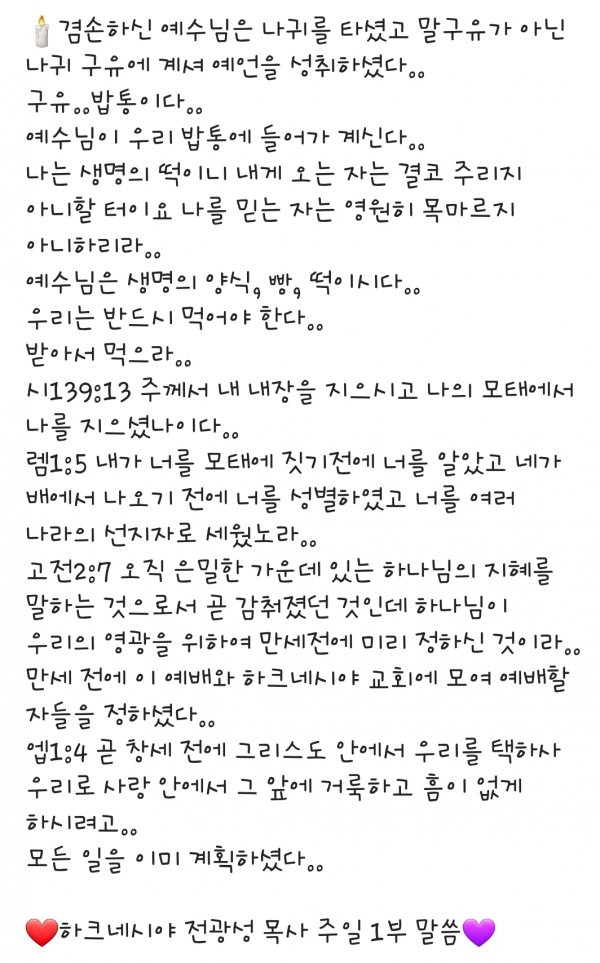 🕯겸손하신 예수님은 나귀를 타셨고 말구유가 아닌
나귀 구유에 계셔 예언을 성취하셨다..
구유..밥통이다..
예수님이 우리 밥통에 들어가 계신다..
나는 생명의 떡이니 내게 오는 자는 결코 주리지
아니할 터이요 나를 믿는 자는 영원히 목마르지
아니하리라..
예수님은 생명의 양식, 빵, 떡이시다..
우리는 반드시 먹어야 한다..
받아서 먹으라..
시139:13 주께서 내 내장을 지으시고 나의 모태에서
나를 지으셨나이다..
렘1:5 내가 너를 모태에 짓기전에 너를 알았고 네가
배에서 나오기 전에 너를 성별하였고 너를 여러
나라의 선지자로 세웠노라..
고전2:7 오직 은밀한 가운데 있는 하나님의 지혜를
말하는 것으로서 곧 감취졌던 것인데 하나님이
우리의 영광을 위하여 만세전에 미리 정하신 것이라..
만세 전에 이 예배와 하크네시야 교회에 모여 예배할
자들을 정하셨다..
엡1:4 곧 창세 전에 그리스도 안에서 우리를 택하사
우리로 사랑 안에서 그 앞에 거룩하고 흠이 없게
하시려고..
모든 일을 이미 계획하셨다..
❤하크네시야 전광성 목사 주일 1부 말씀💜